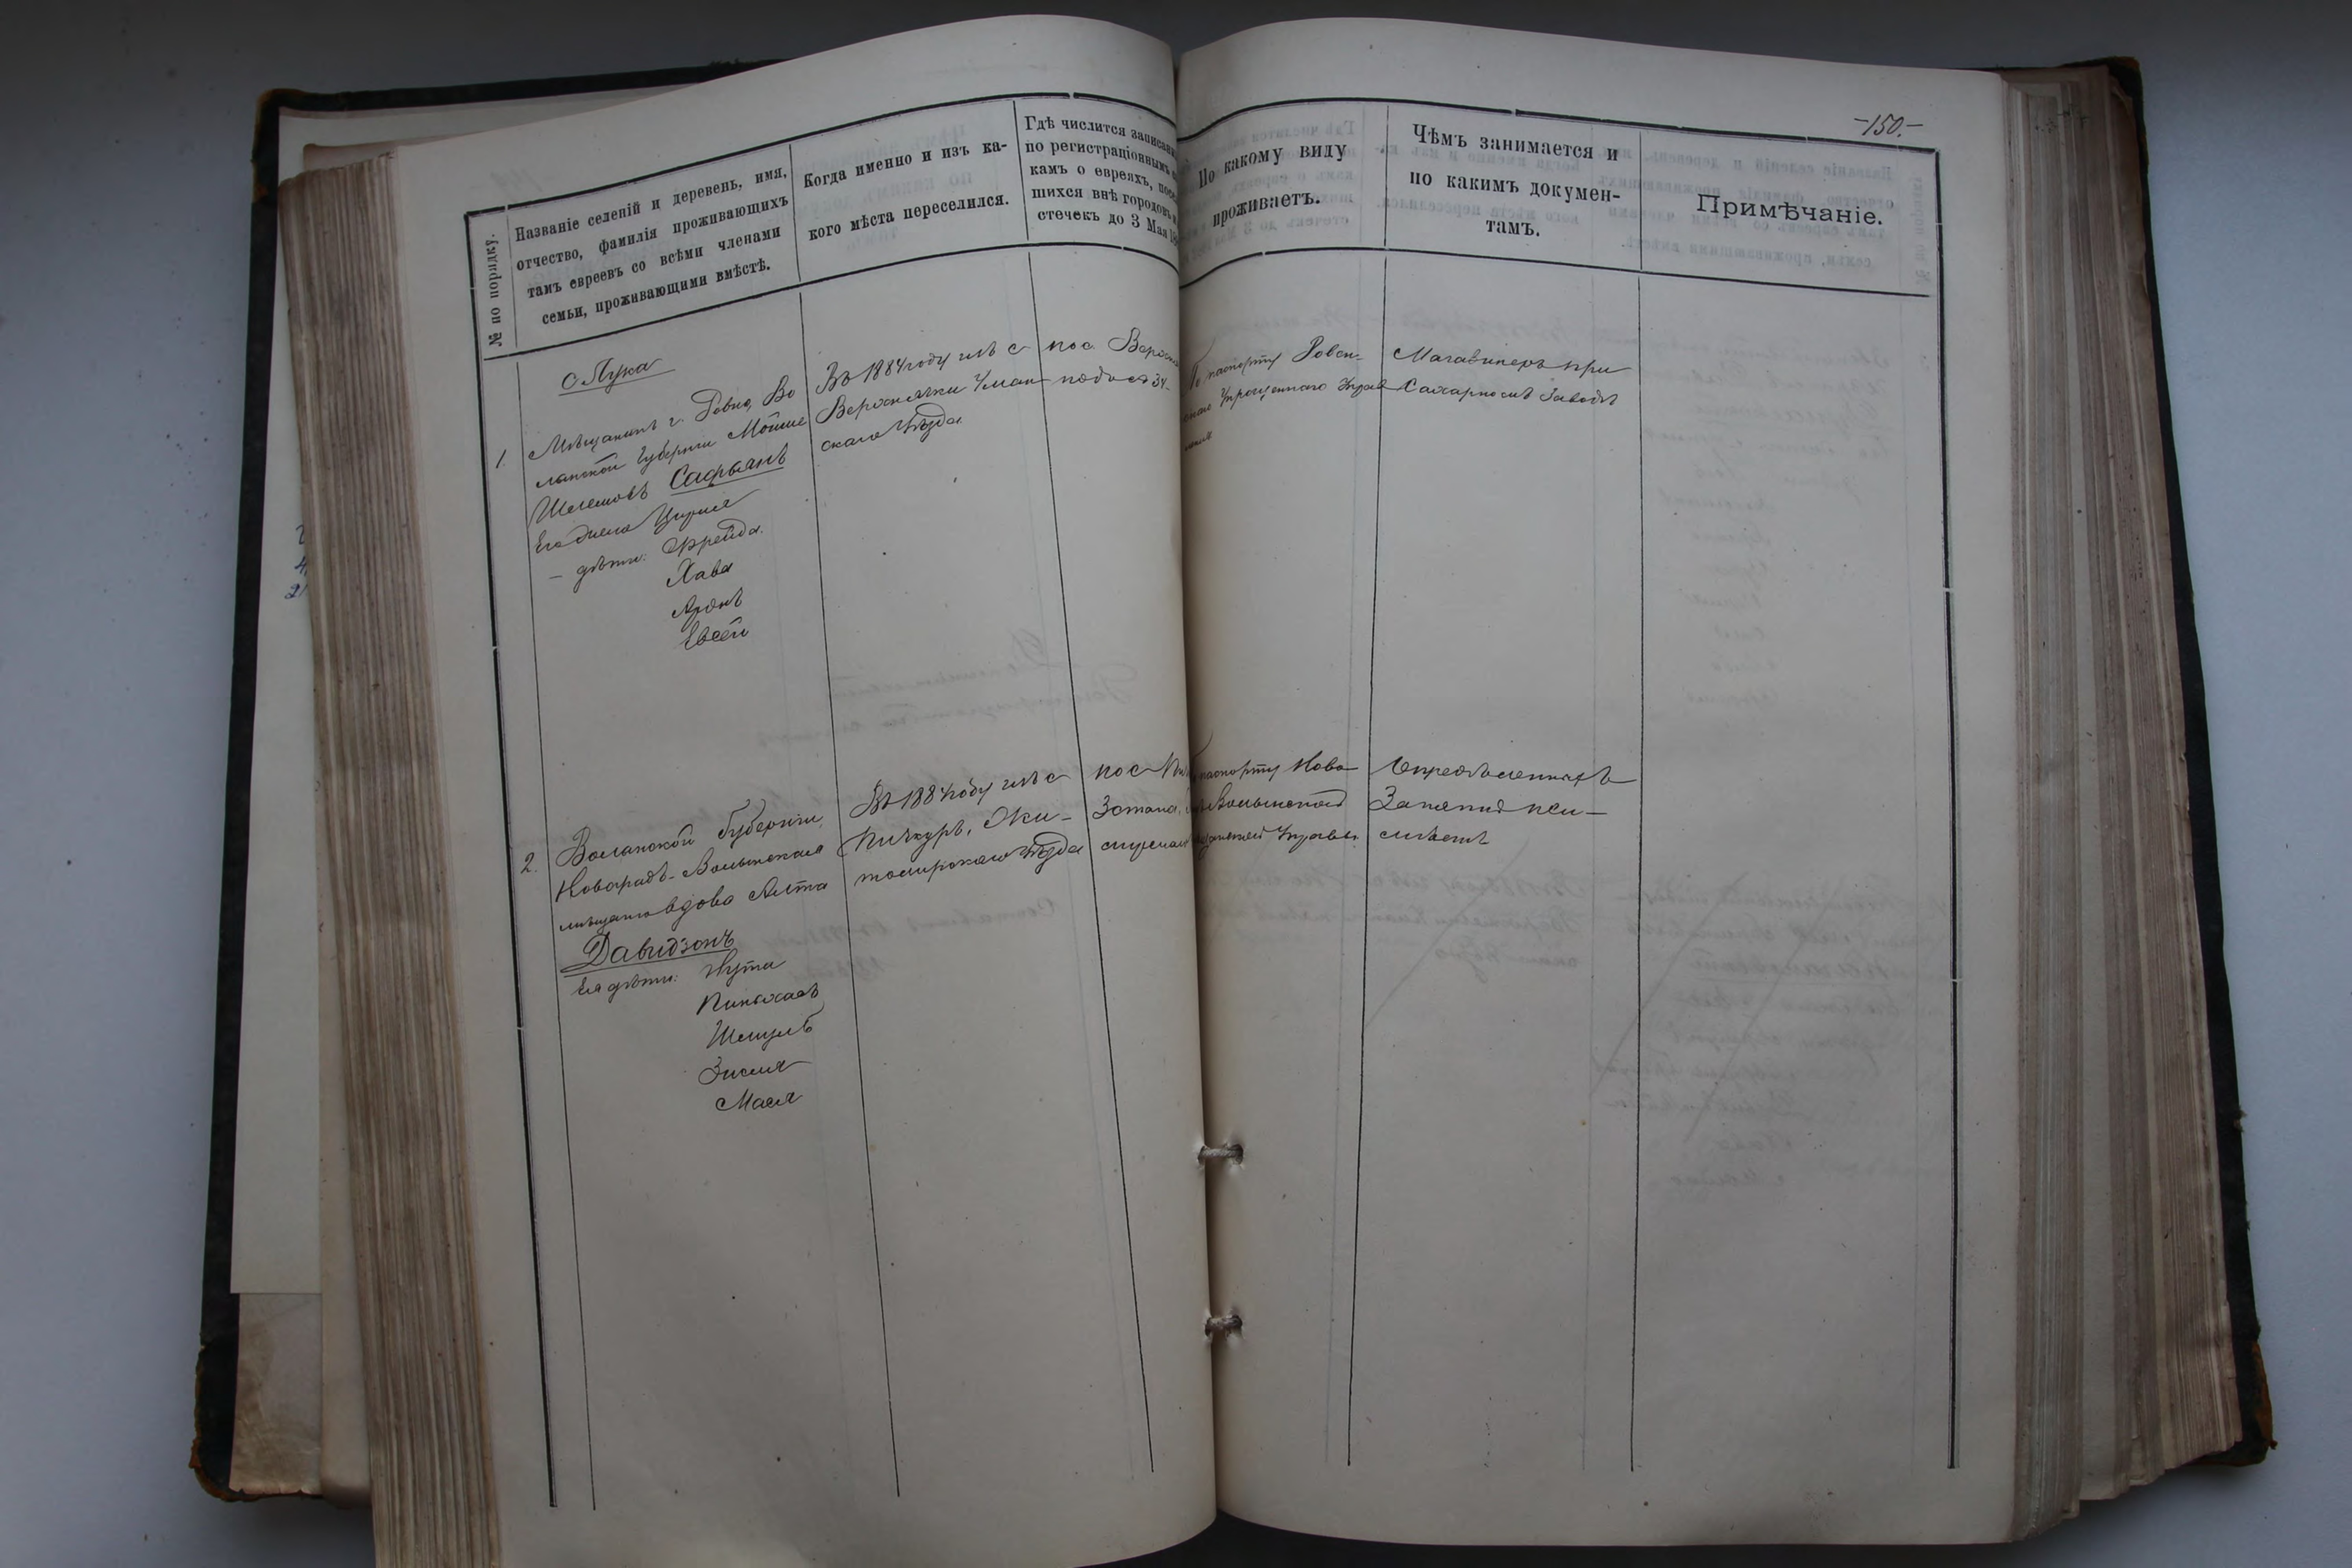 -150.-
№ по порядку.
Названіе селеній и деревень, имя,
отчество, фамилія проживающихъ
тамъ евреевъ со всѣми членами
семьи, проживающими вмѣстѣ.
Когда именно и изъ ка-
кого мѣста переселился.
Гдѣ числится записан
по регистраціоннымъ
камъ о евреяхъ, посе
шихся внѣ городовъ
стечекъ до 3 Мая 18
По какому виду
проживаетъ.
Чѣмъ занимается и
по какимъ докумен-
тамъ.
Примѣчаніе.
с Лука
1.
Мѣщанинъ г. Ровно, Во
лынской Губерніи Мошко
Шлемовъ Сафьянъ
Его жена Цирля
— дѣти: Фрейда.
Хава
Аронъ
Евсей
Въ 1884 году изъ с
Верхнячки Уман
скаго Уѣзда
пос. Верхня
подъ № 34.
По паспорту Ровен-
скаго Упрощеннаго Управ
ленія
Магазинеръ при
Сахарномъ Заводѣ
2.
Волынской Губерніи,
Новоградъ-Волынская
мѣщанка вдова Алта
Давидзонъ
Ея дѣти: Нута
Пинхасъ
Шмуль
Зисля
Мася
Въ 1884 году изъ с
Пичкуръ, Жи-
томирскаго Уѣзда
по с
паспорту Ново
Волынской
Мѣщанской Управы.
Опредѣленныхъ
Занятій неи-
мѣетъ